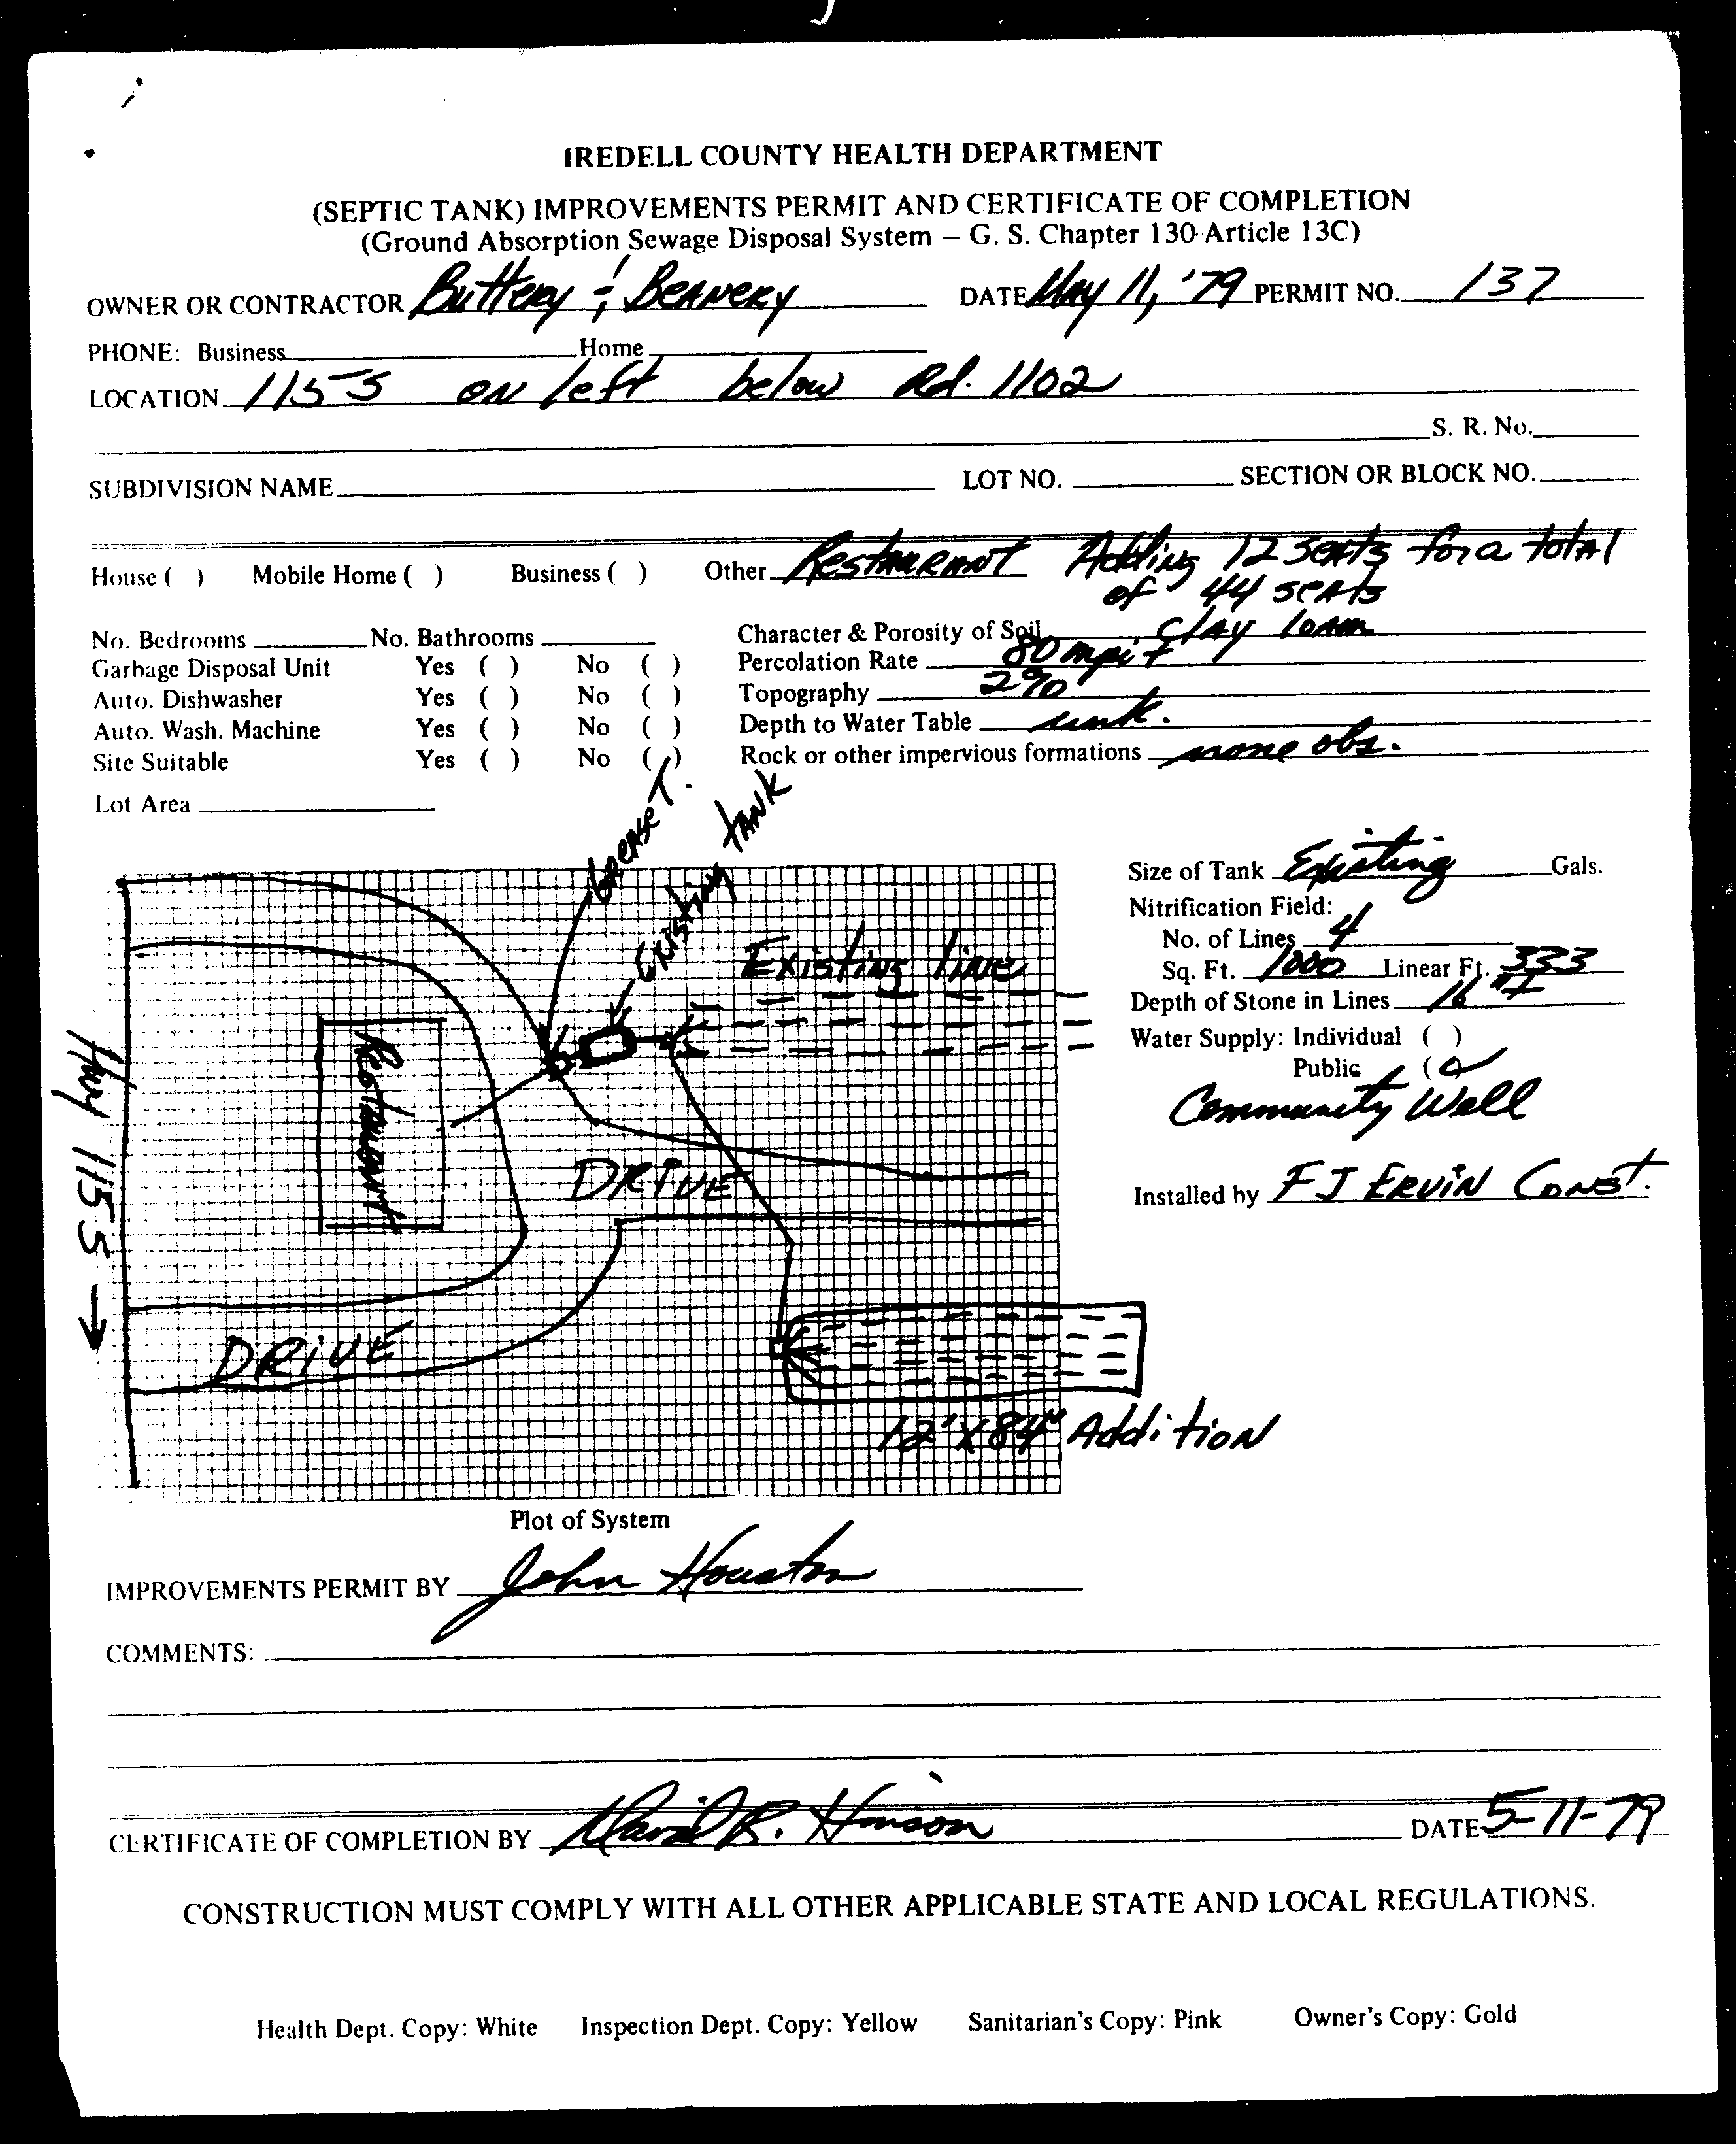 IREDELL COUNTY HEALTH DEPARTMENT
(SEPTIC TANK) IMPROVEMENTS PERMIT AND CERTIFICATE OF COMPLETION
(Ground Absorption Sewage Disposal System – G. S. Chapter 130 Article 13C)
OWNER OR CONTRACTOR Buttery & Beanery DATE May 11, '79 PERMIT NO. 137
PHONE: Business Home
LOCATION 115 S on left below Rd. 1102
S. R. No.
SUBDIVISION NAME LOT NO. SECTION OR BLOCK NO.
House ( ) Mobile Home ( ) Business ( ) Other Restaurant Adding 12 seats for a total
of 44 seats
No. Bedrooms No. Bathrooms Character & Porosity of Soil clay loam
Garbage Disposal Unit Yes ( ) No ( ) Percolation Rate 80 mpi ±
Auto. Dishwasher Yes ( ) No ( ) Topography 2%
Auto. Wash. Machine Yes ( ) No ( ) Depth to Water Table unk.
Site Suitable Yes ( ) No ( ) Rock or other impervious formations none obs.
Lot Area
Grease T.
Existing tank
Existing line
Restaurant
Hwy 115 S →
DRIVE
DRIVE
12' X 84" Addition
Size of Tank Existing Gals.
Nitrification Field:
No. of Lines 4
Sq. Ft. 1000 Linear Ft. 333
Depth of Stone in Lines 16" ±
Water Supply: Individual ( )
Public (✓)
Community Well
Installed by F J ERVIN CONST.
Plot of System
IMPROVEMENTS PERMIT BY John Houston
COMMENTS:
CERTIFICATE OF COMPLETION BY David R. Hinson DATE 5-11-79
CONSTRUCTION MUST COMPLY WITH ALL OTHER APPLICABLE STATE AND LOCAL REGULATIONS.
Health Dept. Copy: White Inspection Dept. Copy: Yellow Sanitarian's Copy: Pink Owner's Copy: Gold